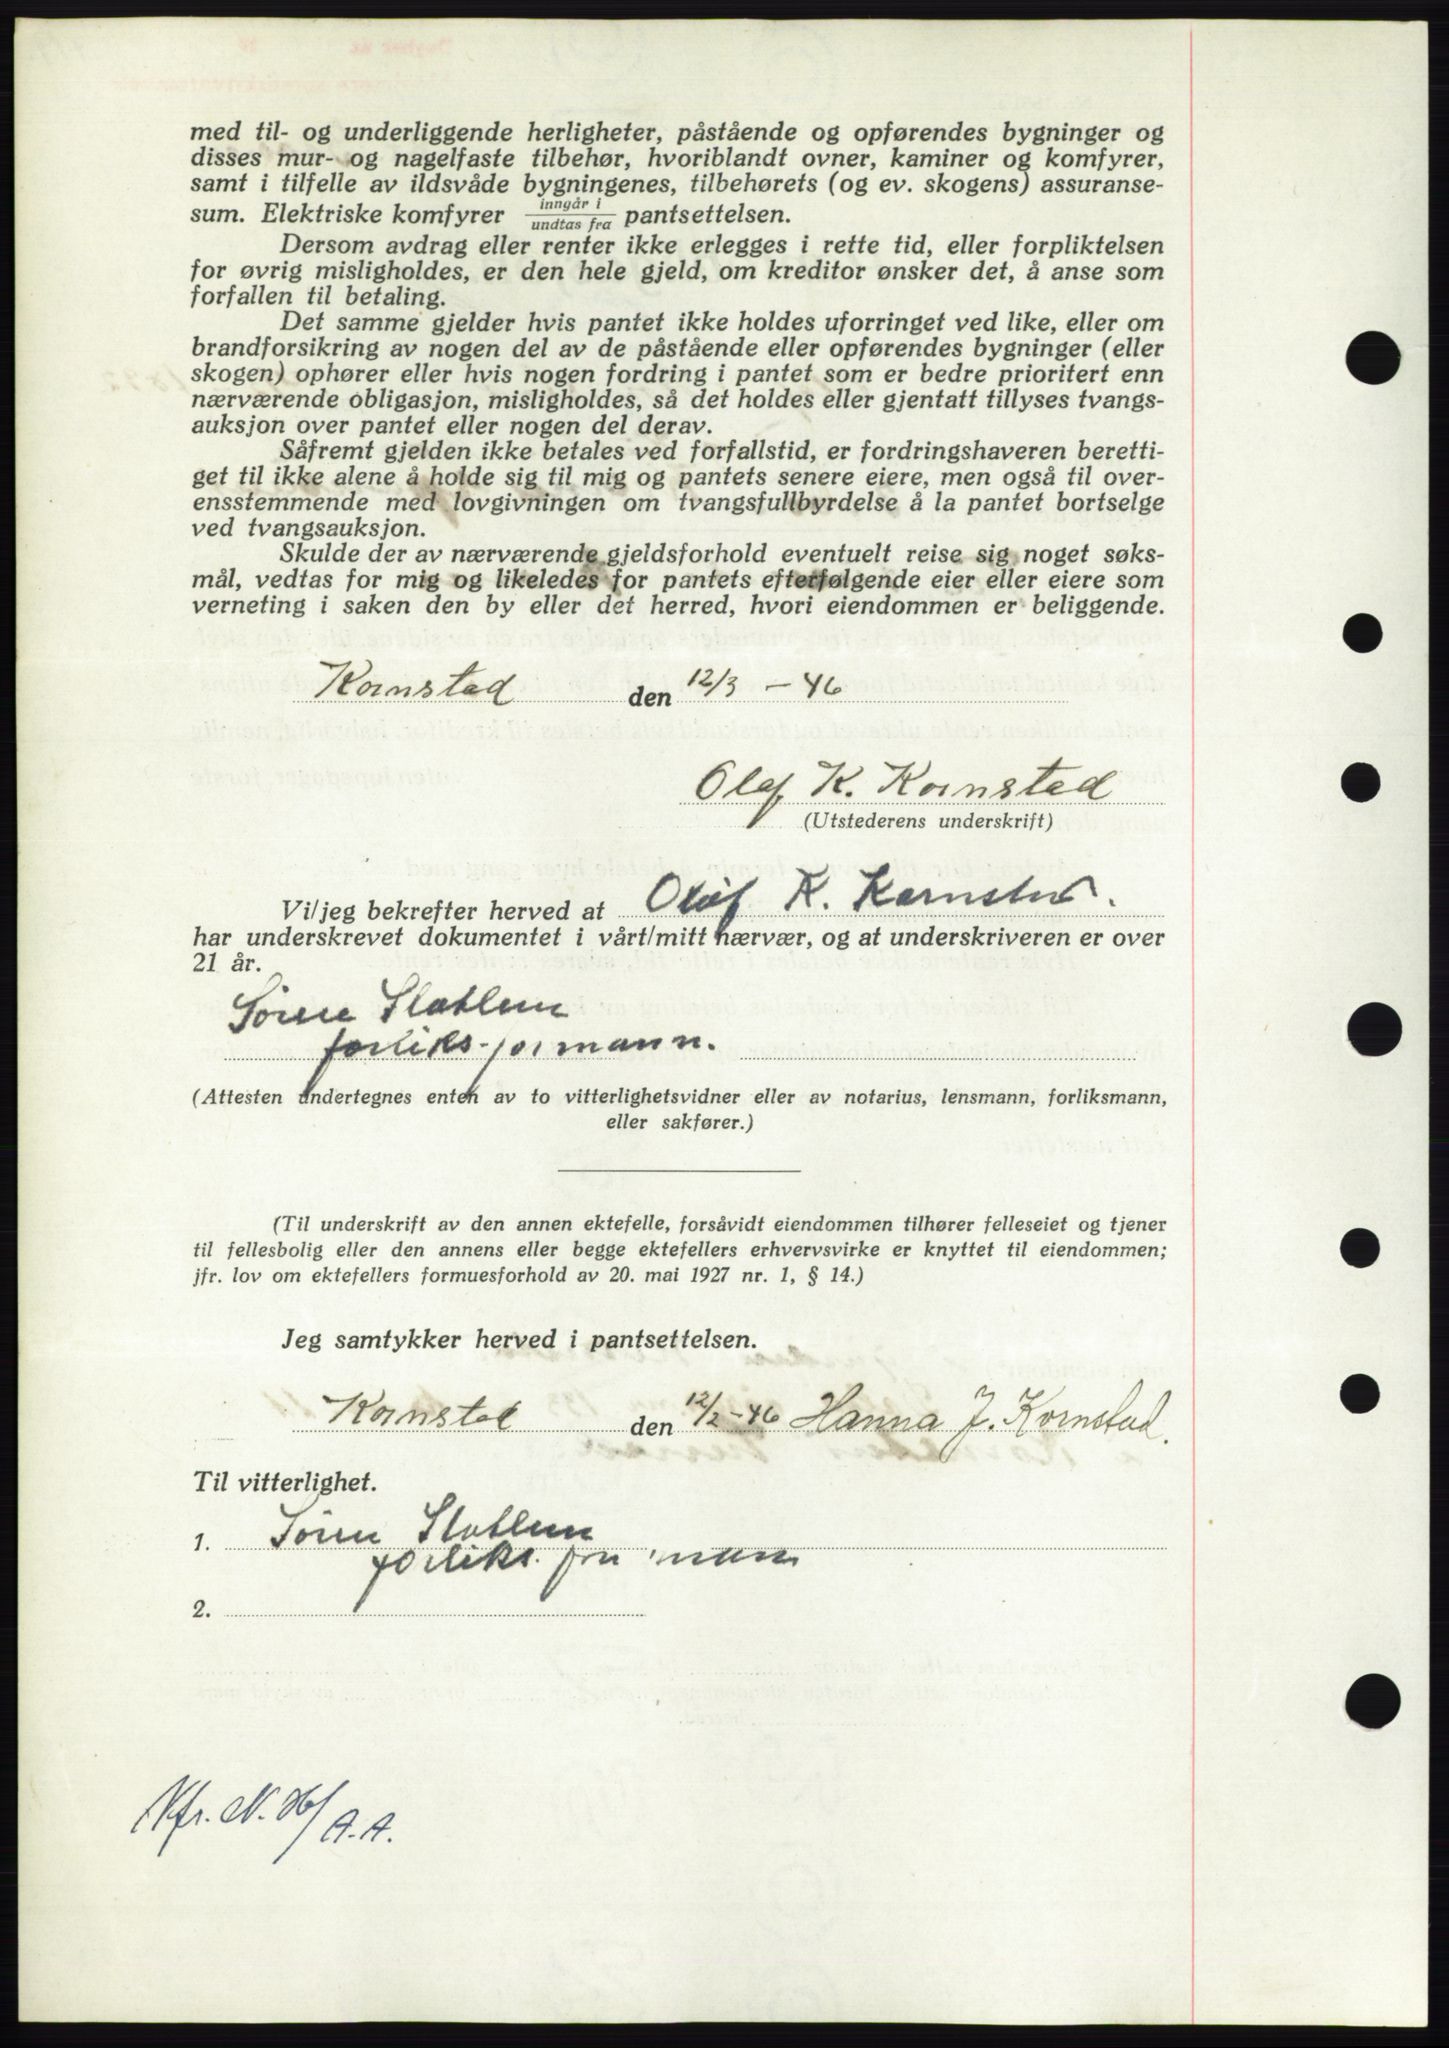 med til- og underliggende herligheter, påstående og opførendes bygninger og
disses mur- og nagelfaste tilbehør, hvoriblandt ovner, kaminer og komfyrer,
samt i tilfelle av ildsvåde bygningenes, tilbehørets (og ev. skogens) assuranse-
sum. Elektriske komfyrer inngår i / undtas fra pantsettelsen.
Dersom avdrag eller renter ikke erlegges i rette tid, eller forpliktelsen
for øvrig misligholdes, er den hele gjeld, om kreditor ønsker det, å anse som
forfallen til betaling.
Det samme gjelder hvis pantet ikke holdes uforringet ved like, eller om
brandforsikring av nogen del av de påstående eller opførendes bygninger (eller
skogen) ophører eller hvis nogen fordring i pantet som er bedre prioritert enn
nærværende obligasjon, misligholdes, så det holdes eller gjentatt tillyses tvangs-
auksjon over pantet eller nogen del derav.
Såfremt gjelden ikke betales ved forfallstid, er fordringshaveren beretti-
get til ikke alene å holde sig til mig og pantets senere eiere, men også til over-
ensstemmende med lovgivningen om tvangsfullbyrdelse å la pantet bortselge
ved tvangsauksjon.
Skulde der av nærværende gjeldsforhold eventuelt reise sig noget søks-
mål, vedtas for mig og likeledes for pantets efterfølgende eier eller eiere som
verneting i saken den by eller det herred, hvori eiendommen er beliggende.
Kornstad den 12/3 - 46
Olaf K. Kornstad
(Utstederens underskrift)
Vi/jeg bekrefter herved at Olaf K. Kornstad.
har underskrevet dokumentet i vårt/mitt nærvær, og at underskriveren er over
21 år.
Søren
forliks-formann.
(Attesten undertegnes enten av to vitterlighetsvidner eller av notarius, lensmann, forliksmann,
eller sakfører.)
(Til underskrift av den annen ektefelle, forsåvidt eiendommen tilhører felleseiet og tjener
til fellesbolig eller den annens eller begge ektefellers erhvervsvirke er knyttet til eiendommen;
jfr. lov om ektefellers formuesforhold av 20. mai 1927 nr. 1, § 14.)
Jeg samtykker herved i pantsettelsen.
Kornstad den 12/2 - 46 Hanna J. Kornstad.
Til vitterlighet.
1. Søren
forliks. formann
2.
A.A.